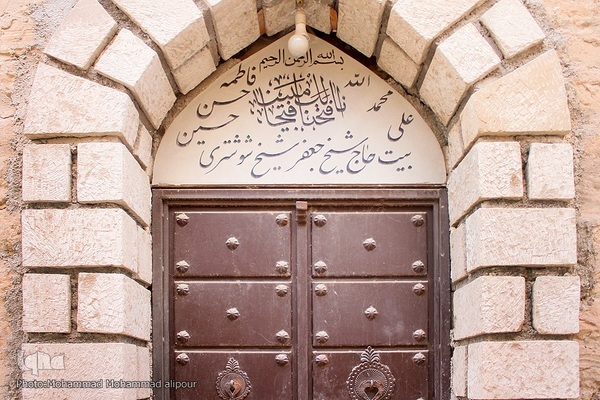 بسم الله الرحمن الرحیم
الله
محمد
علی
فاطمه
حسن
حسین
انا فتحنا لک فتحا مبینا
بیت حاج شیخ جعفر شیخ شوشتری
iqna
Photo:Mohammad Mohammad alipour